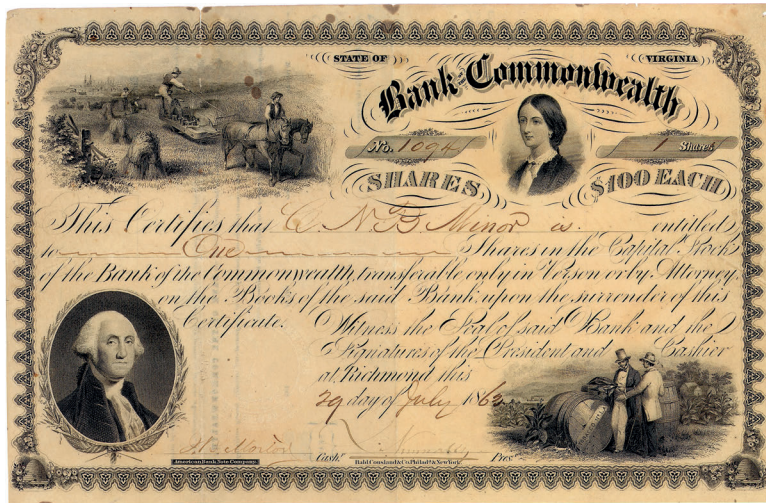 STATE OF VIRGINIA
Bank of Commonwealth
No. 1094 1 Shares
SHARES $100 EACH
This Certifies that C. N. B. Minor is entitled
to One Shares in the Capital Stock
of the Bank of the Commonwealth, transferable only in Person or by Attorney,
on the Books of the said Bank upon the surrender of this
Certificate. Witness the Seal of said Bank and the
Signatures of the President and Cashier
at Richmond this
29 day of July 1862
Cashr. Prest.
American Bank Note Company. Bald, Cousland & Co. Philada. & New York.